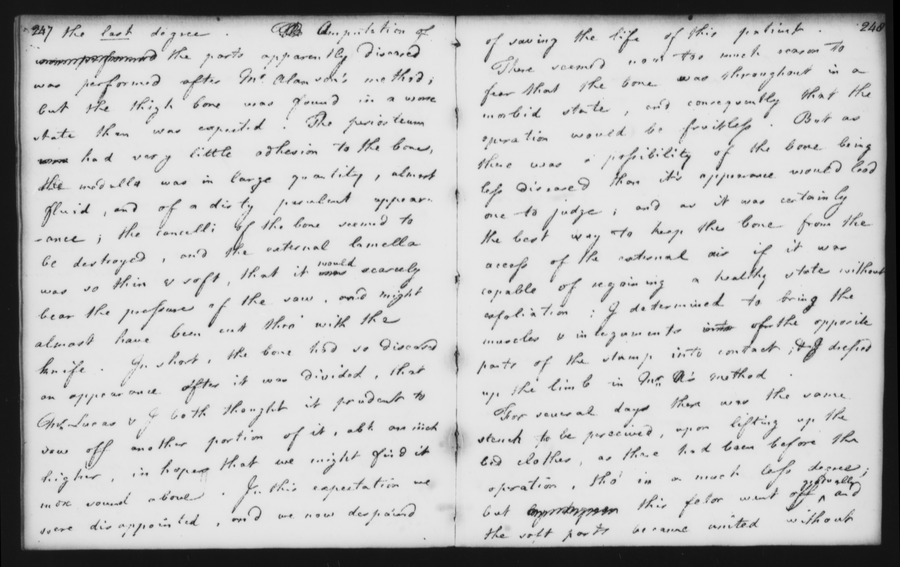 247 the last degree. Amputation of
the parts apparently diseased
was performed after Mr. Alanson's method;
but the thigh bone was found in a worse
state than was expected. The periosteum
had very little adhesion to the bone,
the medulla was in large quantity, almost
fluid, and of a dirty purulent appear-
-ance; the cancelli of the bone seemed to
be destroyed, and the external lamella
was so thin & soft, that it would scarcely
bear the pressure of the saw, and might
almost have been cut thro' with the
knife. In short, the bone had so diseased
an appearance after it was divided, that
Mr. Lucas & I both thought it prudent to
saw off another portion of it, abt. an inch
higher, in hopes that we might find it
more sound above. In this expectation we
were disappointed, and we now despaired
248
of saving the life of this patient.
There seemed now too much reason to
fear that the bone was throughout in a
morbid state, and consequently that the
operation would be fruitless. But as
there was a possibility of the bone being
less diseased than it's appearance would lead
one to judge; and as it was certainly
the best way to keep the bone from the
access of the external air if it was
capable of regaining a healthy state without
exfoliation: I determined to bring the
muscles & integuments of the opposite
parts of the stump into contact, & I dressed
up the limb in Mr. A's method.
For several days there was the same
stench to be perceived, upon lifting up the
bed clothes, as there had been before the
operation, tho' in a much less degree;
but this fetor went off gradually and
the soft parts became united without